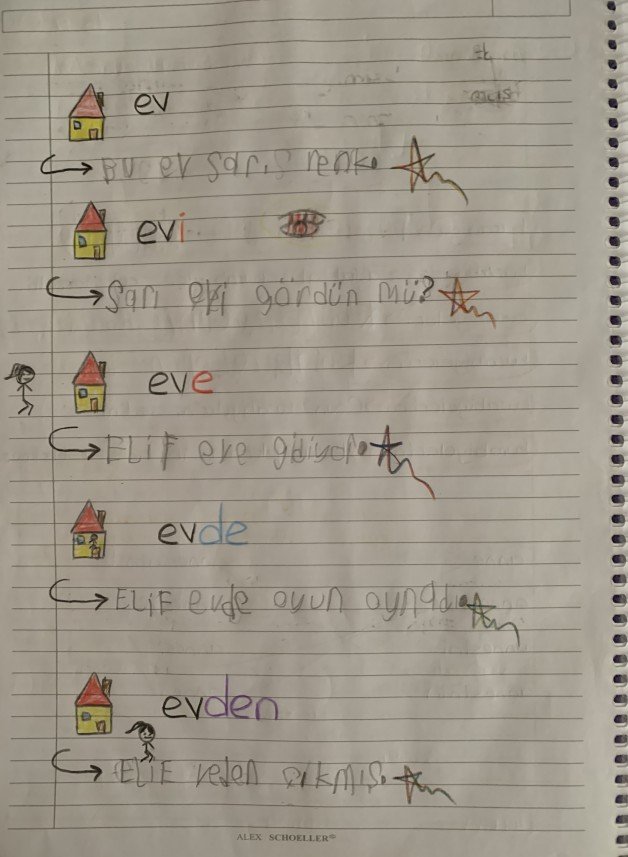 ev
Bu ev sarı renk.
evi
Sarı evi gördün mü?
eve
ELİF eve gidiyor.
evde
ELİF evde oyun oynadı.
evden
ELİF veden çıkmış.
ALEX SCHOELLER®